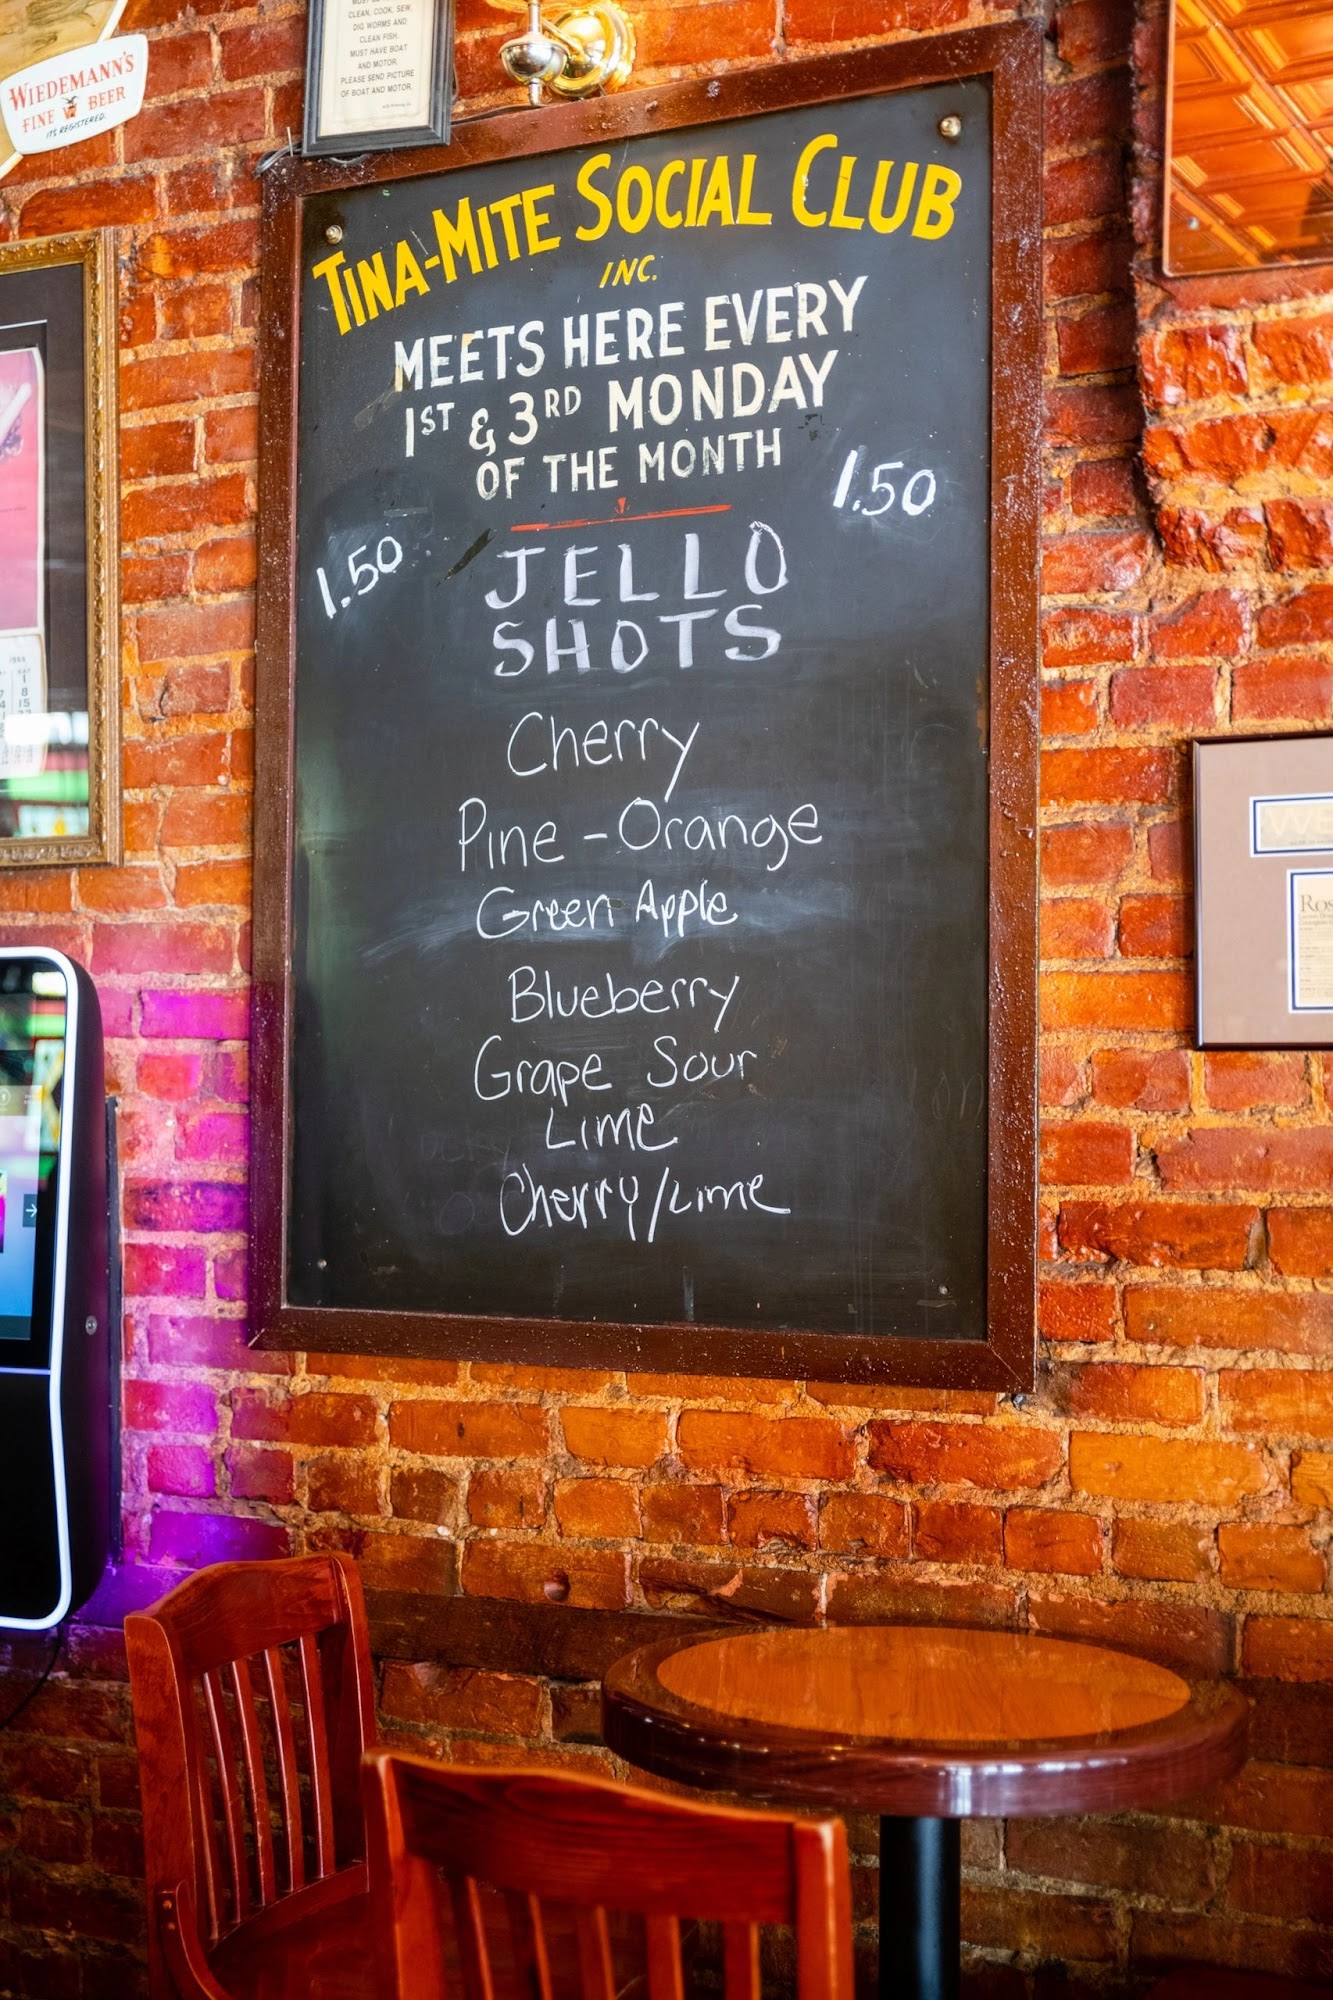 WIEDEMANN'S
FINE BEER
ITS REGISTERED.
CLEAN, COOK, SEW,
DIG WORMS AND
CLEAN FISH.
MUST HAVE BOAT
AND MOTOR.
PLEASE SEND PICTURE
OF BOAT AND MOTOR.
TINA-MITE SOCIAL CLUB
INC.
MEETS HERE EVERY
1ST & 3RD MONDAY
OF THE MONTH
1.50
1.50
JELLO
SHOTS
Cherry
Pine-Orange
Green Apple
Blueberry
Grape Sour
Lime
Cherry/Lime